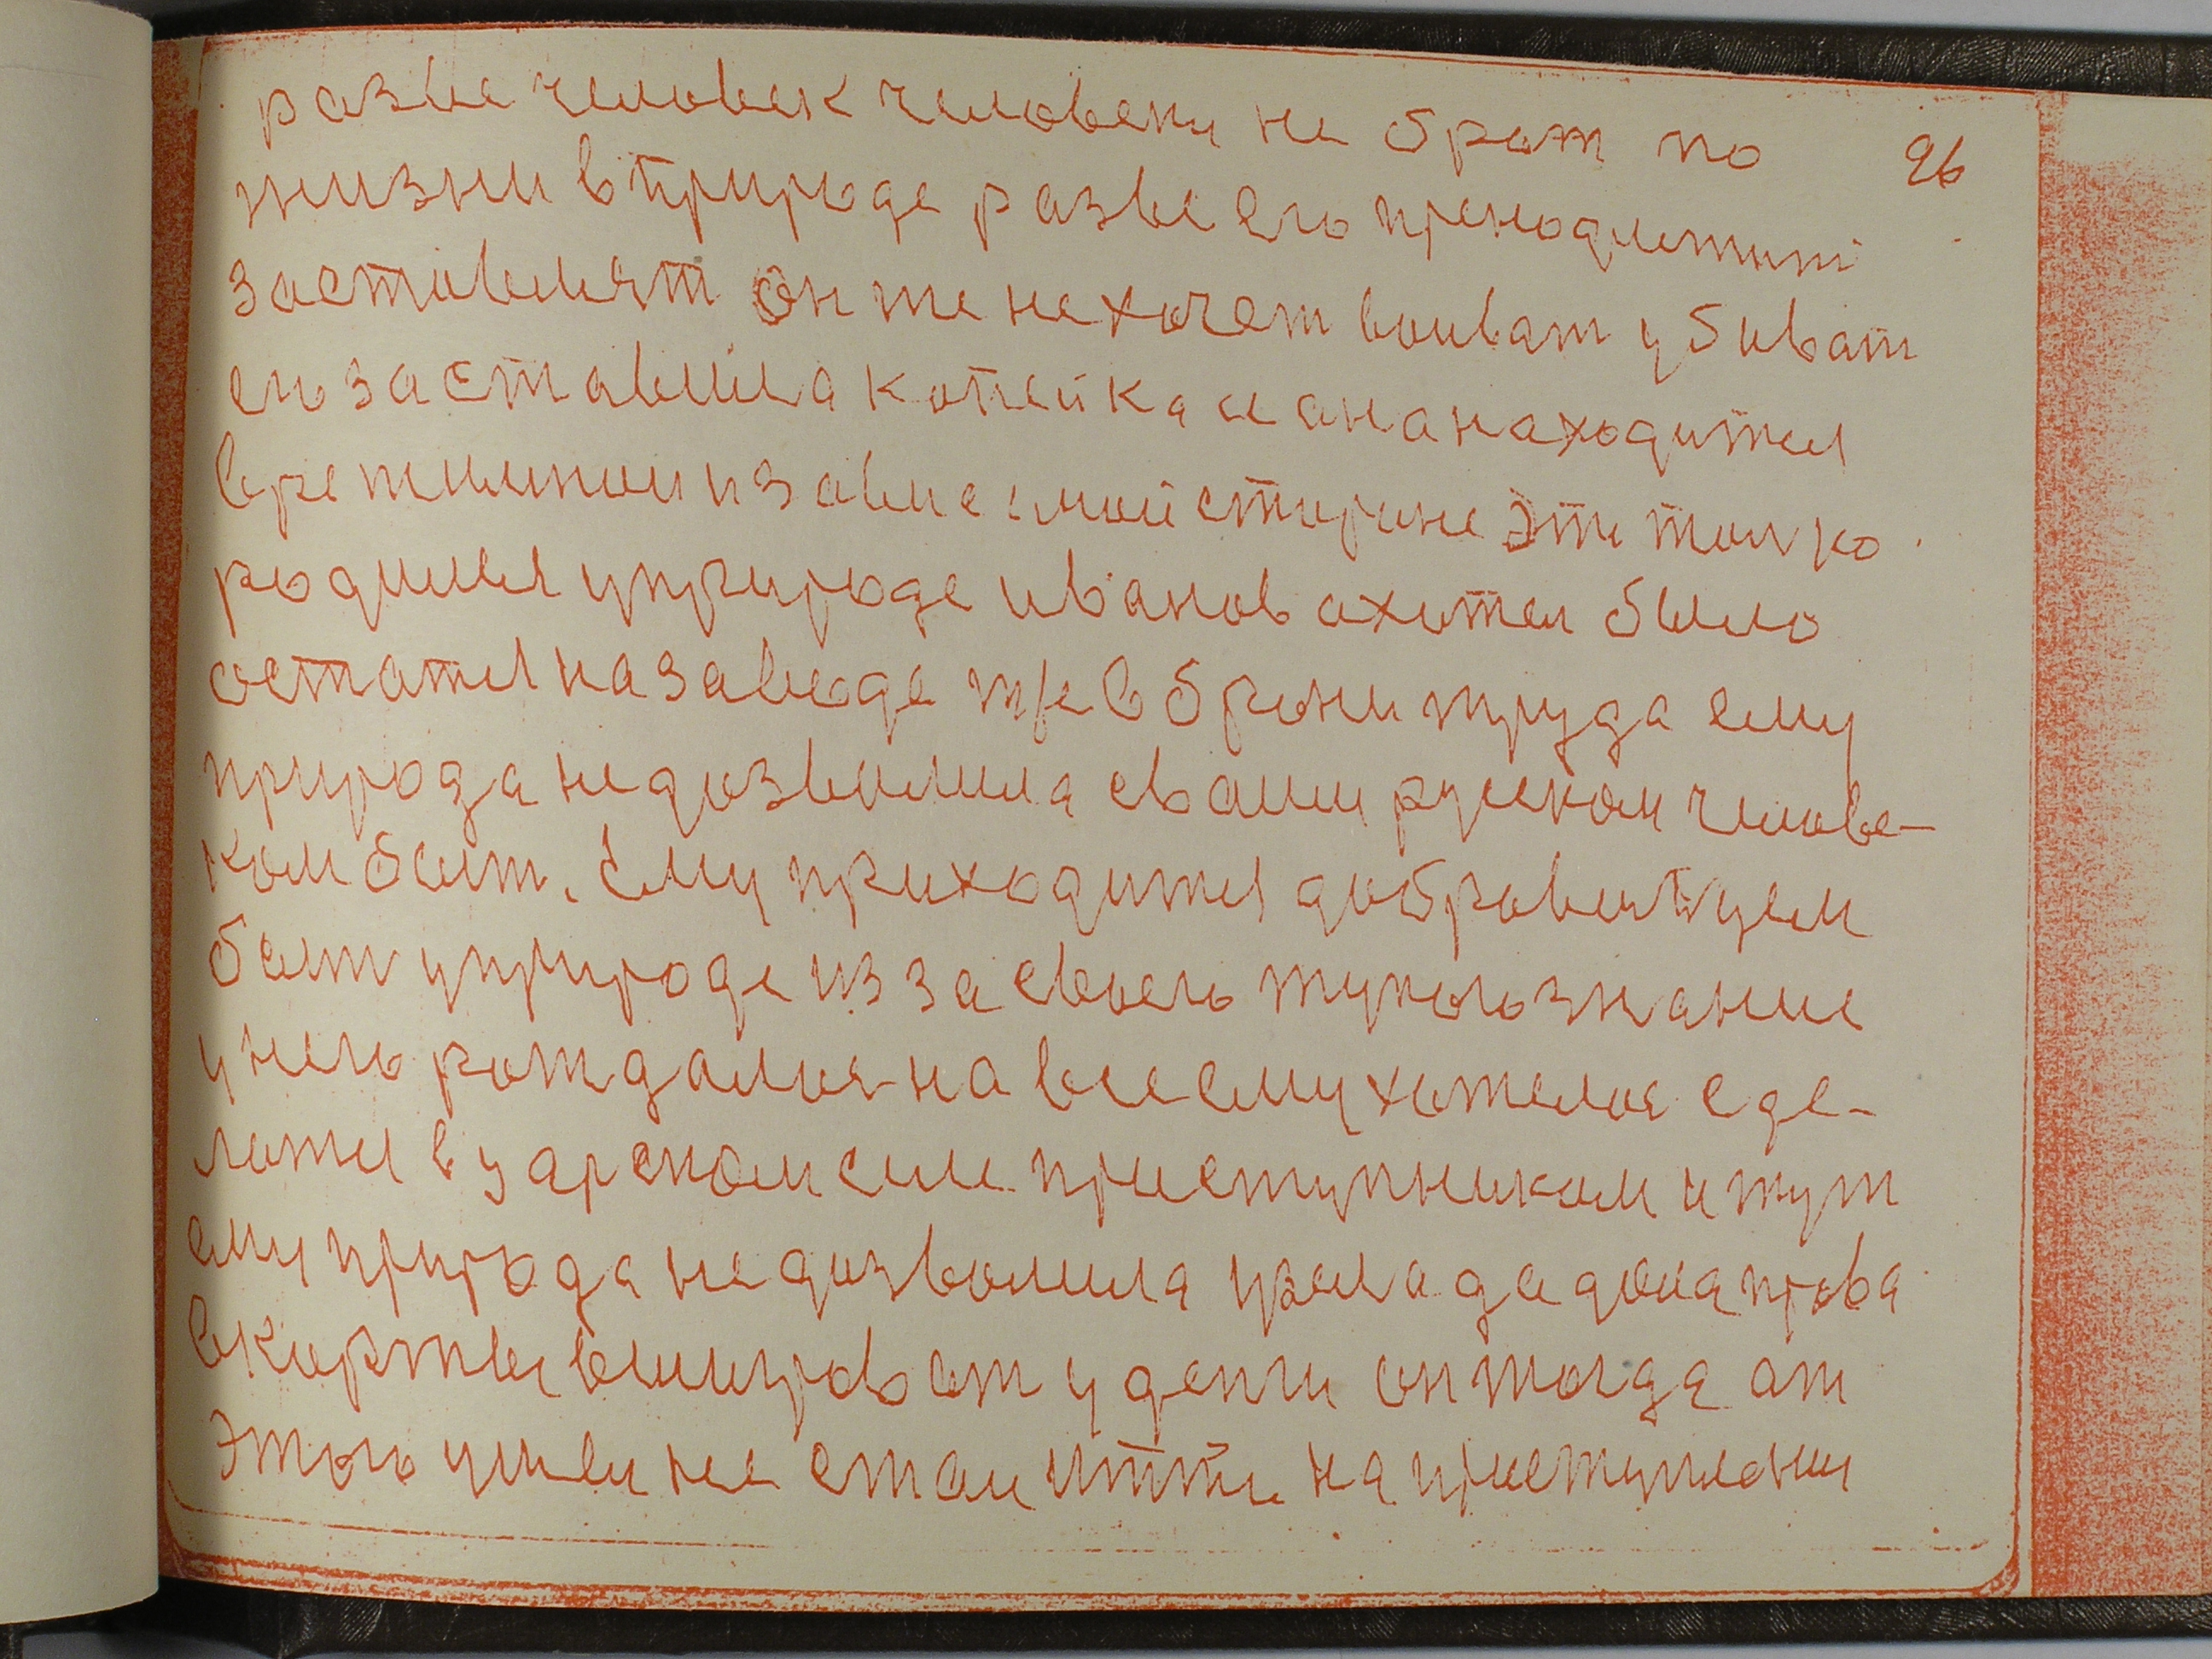 разве человек человеку не брат по 96
жизни в природе разве его принодлетит
заставлят он же не хочет воиват убиват
его заставила копейка и она находится
в режимнои и зависимой стороне эти толко
родился у природе иванов а хотел было
остатся на заводе т/е в брони труда ему
природа недозволила сваим руском челове-
ком быт. Ему приходится доброволцем
быт у природе из за своего тупого знание
у него рождалося на все ему хотелося сде-
латся в царском селе приступником и тут
ему природа недозволила урала да дона права
в карты выигроват у денги он тогда от
этого ушел не стал итти на приступлении